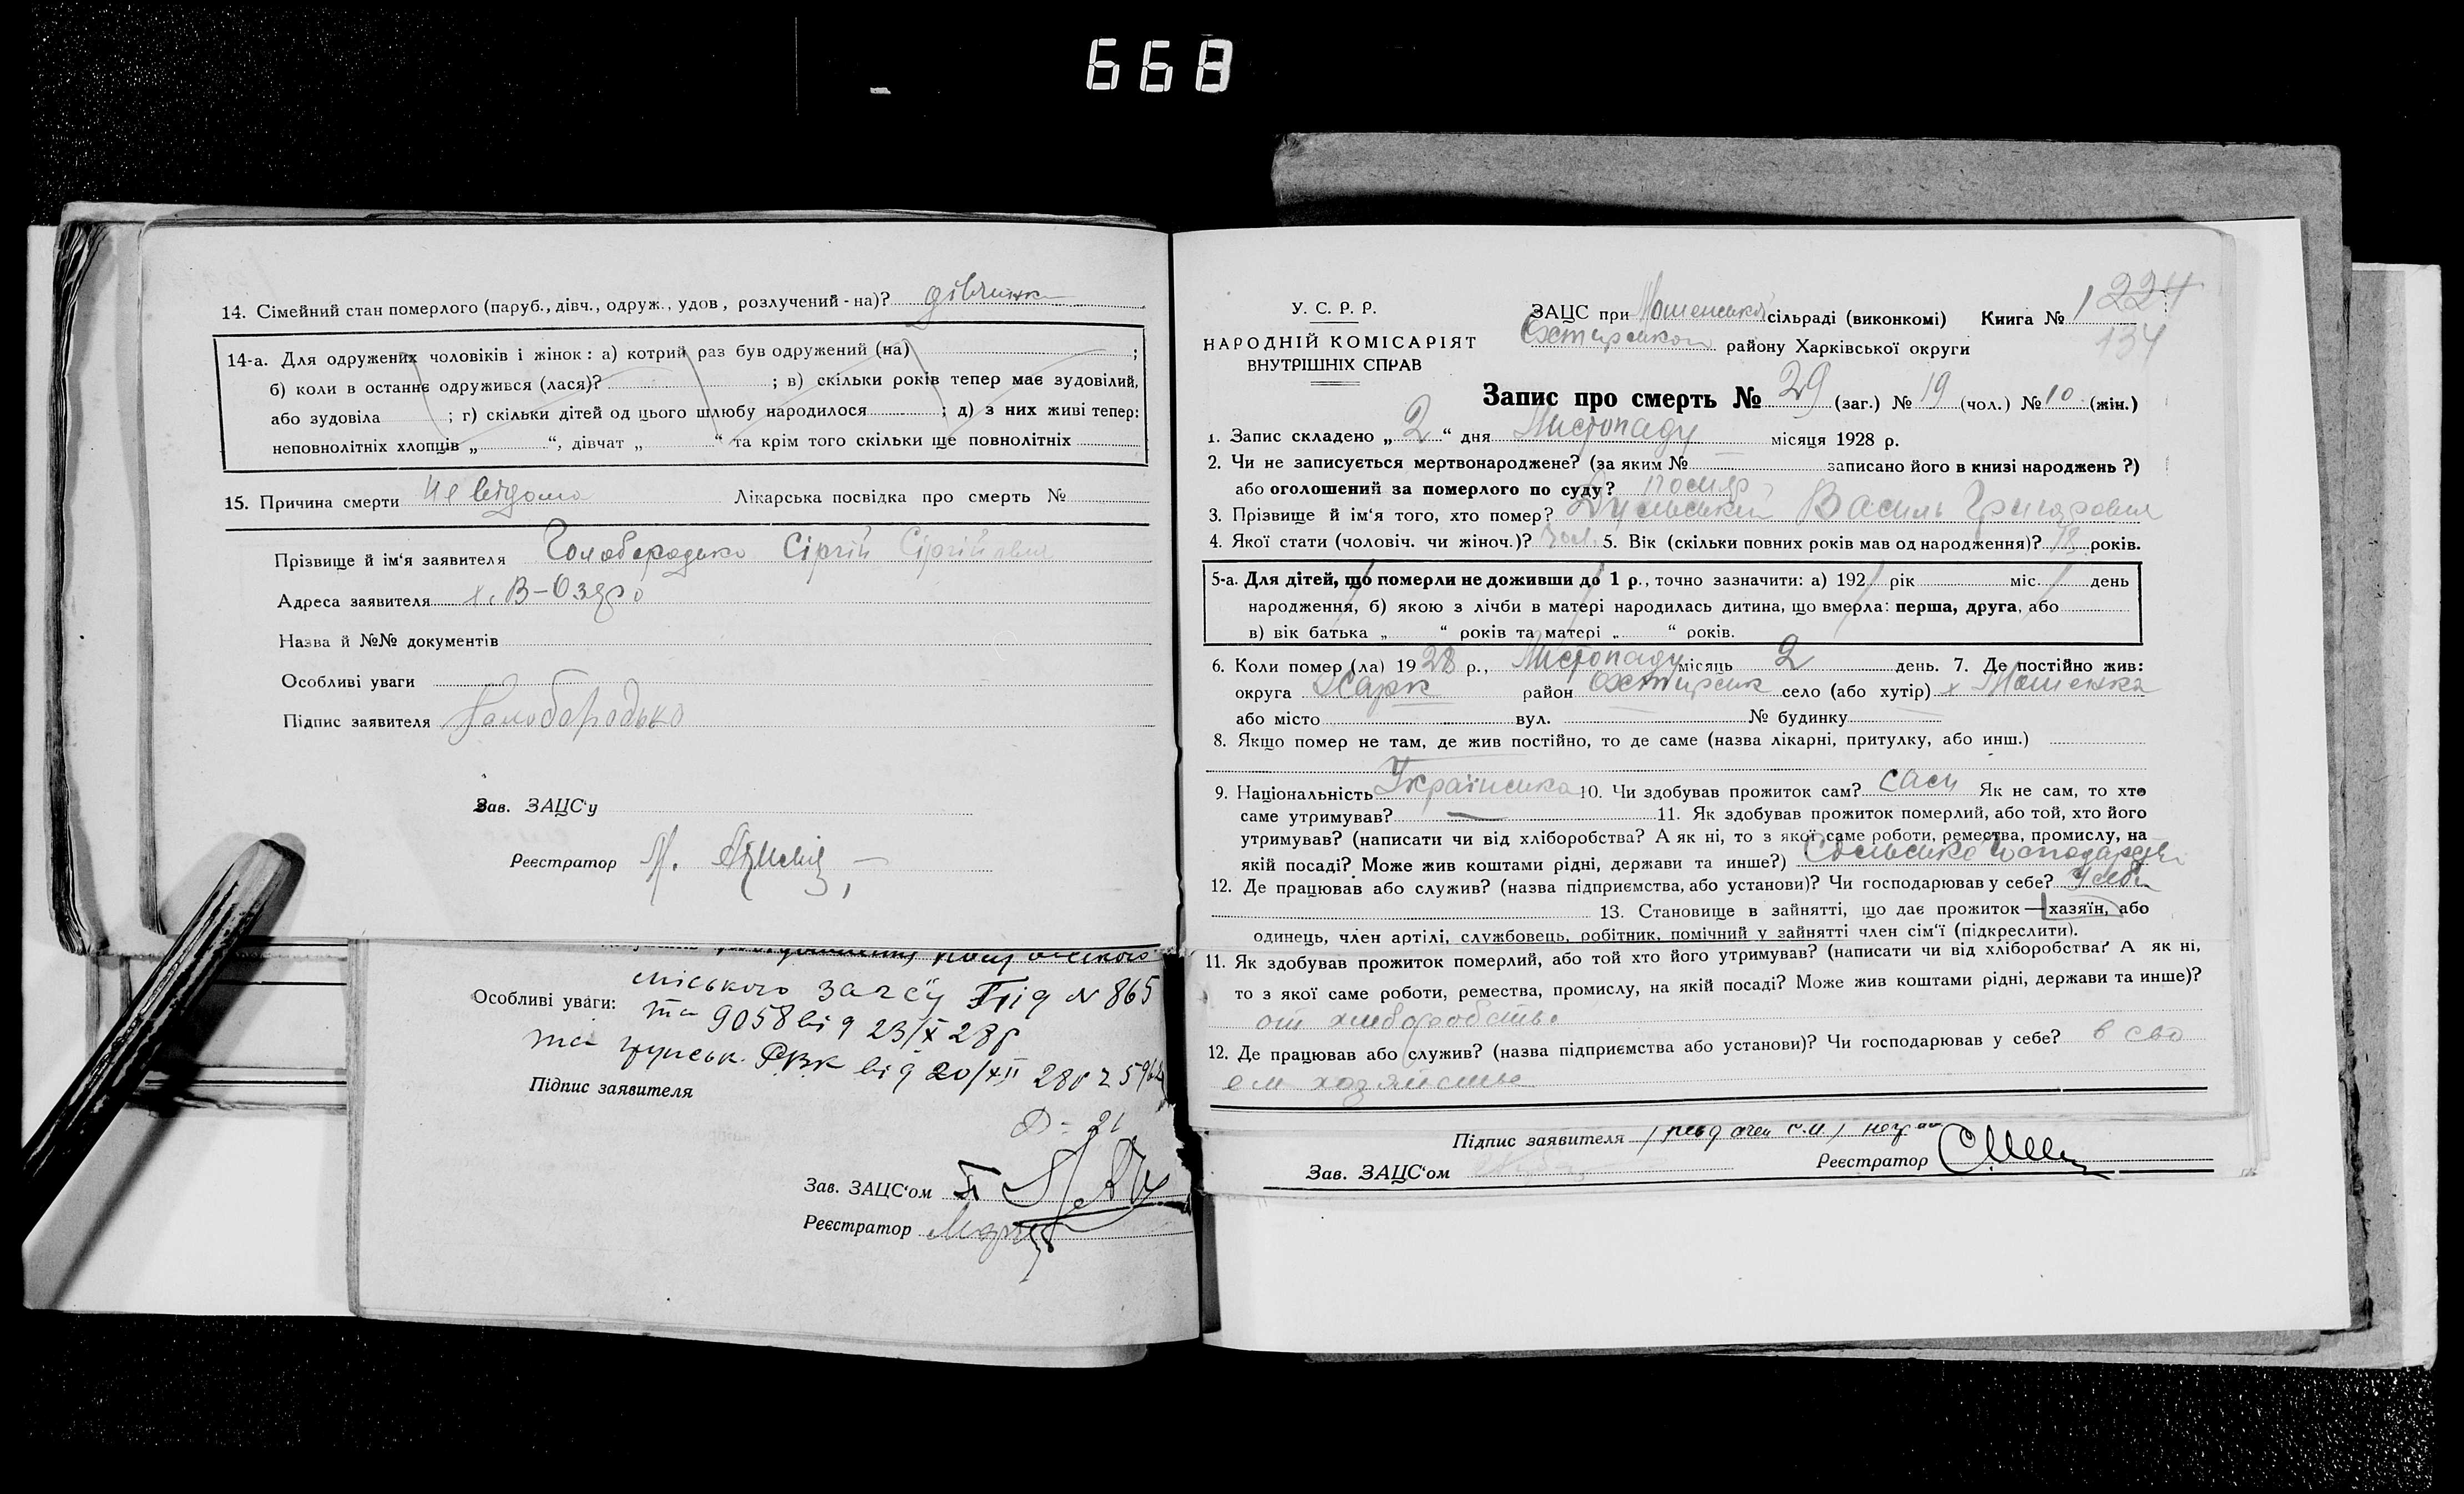 668
14. Сімейний стан померлого (паруб., дівч., одруж., удов, розлучений - на)? дівчинка
14-а. Для одружених чоловіків і жінок: а) котрий раз був одружений (на) ;
б) коли в останнє одружився (лася)? ; в) скільки років тепер має зудовілий,
або зудовіла ; г) скільки дітей од цього шлюбу народилося ; д) з них живі тепер:
неповнолітніх хлопців „ “, дівчат „ “ та крім того скільки ще повнолітніх
15. Причина смерти Не відомо Лікарська посвідка про смерть №
Прізвище й ім'я заявителя Голобородько Сіргій Сіргійович
Адреса заявителя х. В-Озеро
Назва й №№ документів
Особливі уваги
Підпис заявителя Голобородько
Зав. ЗАЦС'у
Реєстратор
міського загсу Під № 865
Особливі уваги:
та 9058 від 23/X 28р
та РВК від 20/XII 28р
Підпис заявителя
Зав. ЗАЦС'ом
Реєстратор
У. С. Р. Р.
НАРОДНІЙ КОМІСАРІЯТ
ВНУТРІШНІХ СПРАВ
ЗАЦС при Мошенській сільраді (виконкомі) Книга № 1 224
134
Охтирського району Харківської округи
Запис про смерть № 29 (заг.) № 19 (чол.) № 10 (жін.)
1. Запис складено „ 2 “ дня Листопаду місяця 1928 р.
2. Чи не записується мертвонароджене? (за яким № записано його в книзі народжень ?)
або оголошений за померлого по суду?
3. Прізвище й ім'я того, хто помер? Василь Григорович
4. Якої стати (чоловіч. чи жіноч.)? чол. 5. Вік (скільки повних років мав од народження)? 78 років.
5-а. Для дітей, що померли не доживши до 1 р., точно зазначити: а) 192 рік міс. день
народження, б) якою з лічби в матері народилась дитина, що вмерла: перша, друга, або
в) вік батька „ “ років та матері „ “ років.
6. Коли помер (ла) 1928 р., Листопаду місяць 2 день. 7. Де постійно жив:
округа Харк район Охтирськ село (або хутір) х Мошенка
або місто вул. № будинку
8. Якщо помер не там, де жив постійно, то де саме (назва лікарні, притулку, або инш.)
9. Національність Українська 10. Чи здобував прожиток сам? сам Як не сам, то хто
саме утримував? — 11. Як здобував прожиток померлий, або той, хто його
утримував? (написати чи від хліборобства? А як ні, то з якої саме роботи, ремества, промислу, на
якій посаді? Може жив коштами рідні, держави та инше?)
12. Де працював або служив? (назва підприємства, або установи)? Чи господарював у себе? У себе
13. Становище в зайнятті, що дає прожиток — хазяїн, або
одинець, член артілі, службовець, робітник, помічний у зайнятті член сім'ї (підкреслити).
11. Як здобував прожиток померлий, або той хто його утримував? (написати чи від хліборобства? А як ні,
то з якої саме роботи, ремества, промислу, на якій посаді? Може жив коштами рідні, держави та инше)?
от хлеборобства
12. Де працював або служив? (назва підприємства або установи)? Чи господарював у себе? в сво
ем хазяйстве
Підпис заявителя
Зав. ЗАЦС'ом Реєстратор